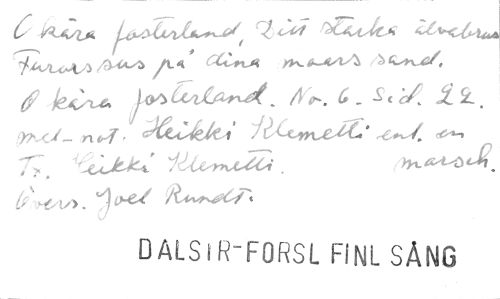 O kära fosterland, Ditt starka älvabrus
Furors sus på dina moars sand.
O kära fosterland. No. 6. Sid. 22.
mel-not. Heikki Klemetti enl. en
Tx. Heikki Klemetti. marsch.
Övers. Joel Rundt.
DALSTR-FORSL FINL SÅNG